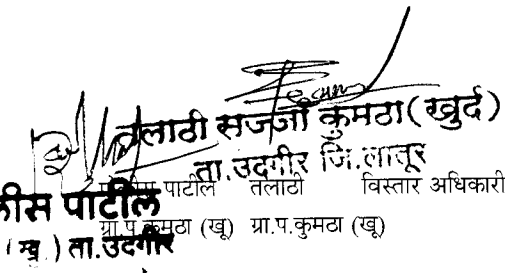 तलाठी सज्जा कुमठा(खुर्द)
ता.उदगीर जि.लातूर
पाटील तलाठी विस्तार अधिकारी
पाटील
ग्रा.प.कुमठा (खू) ग्रा.प.कुमठा (खू)
ता.उदगीर